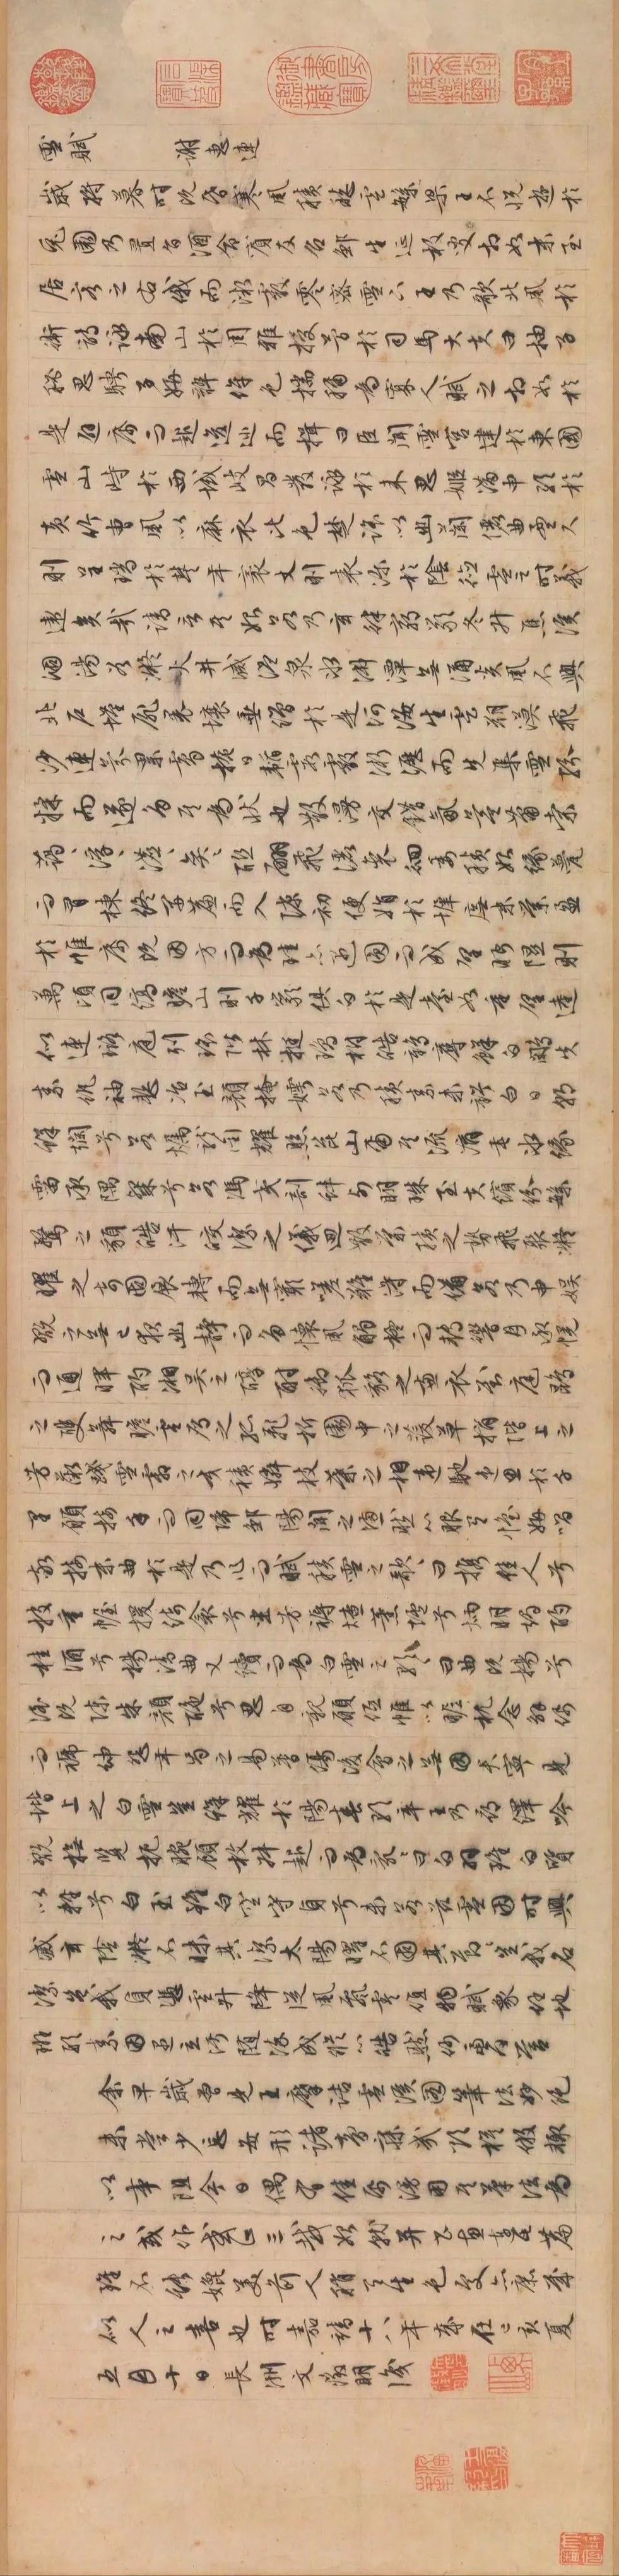 雪賦　謝惠連
歲將暮時既昏寒風積愁雲繁梁王不悅遊於
兔園乃置旨酒命賓友召鄒生延枚叟相如末至
居客之右俄而微霰零密雪下王乃歌北風於
衛詩詠南山於周雅授簡於司馬大夫曰抽子
秘思騁子妍辭侔色揣稱為寡人賦之相如於
是避席而起逡巡而揖曰臣聞雪宮建於東國
雪山峙於西域岐昌發詠於來思姬滿申歌於
黃竹曹風以麻衣比色楚謠以幽蘭儷曲盈尺
則呈瑞於豐年袤丈則表沴於陰德雪之時義
遠矣哉請言其始若乃玄律窮嚴氣升焦溪
涸湯谷凝火井滅溫泉冰沸潭無湧炎風不興
北戶墐扉裸壤垂繒於是河海生雲朔漠飛
沙連氛累靄掩日韜霞霰淅瀝而先集雪紛
糅而遂多其為狀也散漫交錯氛氳蕭索
藹藹浮浮瀌瀌奕奕聯翩飛灑徘徊委積始緣甍
而冒棟終開簾而入隙初便娟於墀廡末縈盈
於帷席既因方而為珪亦遇圓而成璧眄隰則
萬頃同縞瞻山則千巖俱白於是臺如重璧逵
似連璐庭列瑤階林挺瓊樹皓鶴奪鮮白鷴失
素紈袖慚冶玉顏掩姱若乃積素未虧白日朝
鮮爛兮若燭龍銜耀照昆山爾其流滴垂冰緣
霤承隅粲兮若馮夷剖蚌列明珠至夫繽紛繁
騖之貌皓汗皎潔之儀迴散縈積之勢飛聚凝
曜之奇固展轉而無窮嗟難得而備知若乃申娛
翫之無已夜幽靜而多懷風觸楹而轉響月承幌
而通暉酌湘吳之醇酎御狐貉之兼衣對庭鵾
之雙舞瞻雲鴈之孤飛折園中之萱草摘階上之
芳薇踐霜雪之交積憐枝葉之相違馳遙思於千
里願接手而同歸鄒陽聞之懣然心服有懷妍唱
敬接末曲於是乃作而賦積雪之歌歌曰攜佳人兮
披重幄援綺衾兮坐芳褥燎薰爐兮炳明燭酌
桂酒兮揚清曲又續而為白雪之歌歌曰曲既揚兮
酒既陳朱顏酡兮思自親願低帷以昵枕念解佩
而褫紳怨年歲之易暮傷後會之無因君寧見
階上之白雪豈鮮耀於陽春歌卒王乃尋繹吟
翫撫覽扼腕顧枚叔起而為亂亂曰白羽雖白質
以輕兮白玉雖白空守貞兮未若茲雪因時興
滅玄陰凝不昧其潔太陽曜不固其節節豈我名
潔豈我貞憑雲升降從風飄零值物賦象任地
班形素因遇立污隨染成縱心皓然何慮何營
余早歲曾見王摩詰雪溪圖筆法妙絕
未嘗少忘每形諸夢寐欲模倣輒
以事阻今日偶佳紙漫用其筆法為
之或作或輟三載始就并書賦
雖不能媲美前人稍有生色
似人之喜也時嘉靖十八年歲在己亥夏
五月十日長洲文徵明識